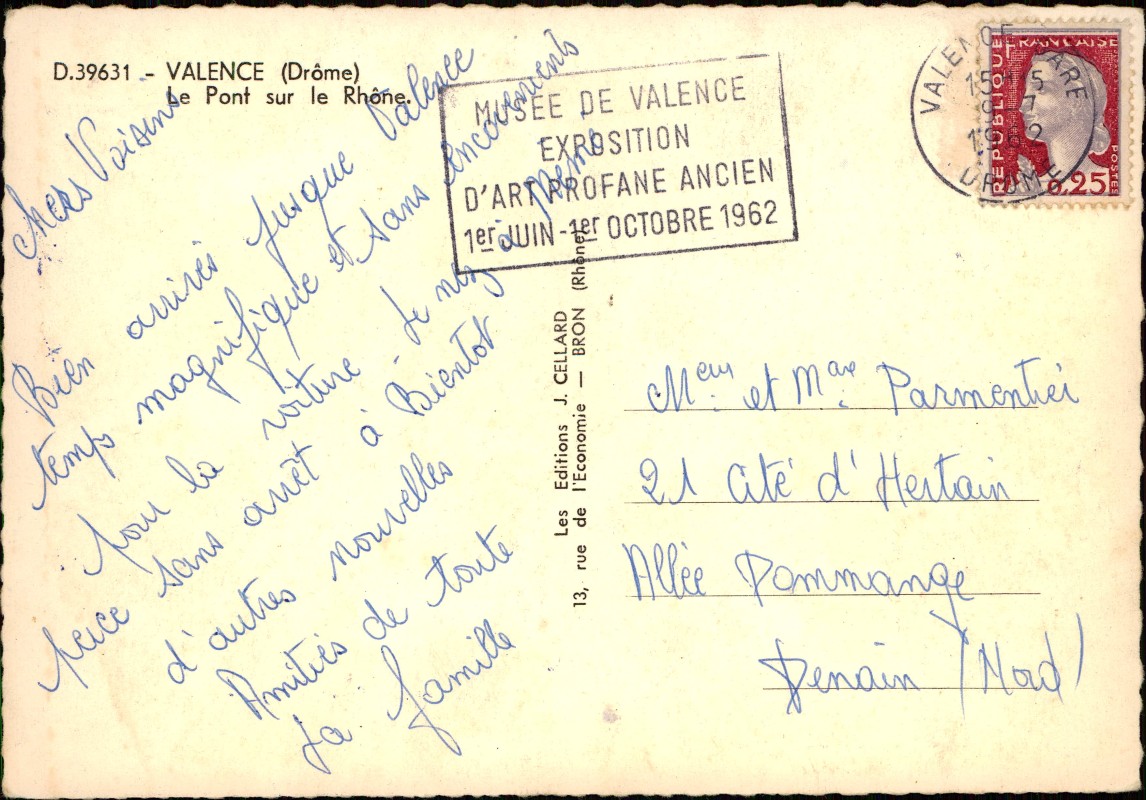 D.39631 - VALENCE (Drôme)
Le Pont sur le Rhône.
MUSÉE DE VALENCE
EXPOSITION
D'ART PROFANE ANCIEN
1er JUIN - 1er OCTOBRE 1962
VALENCE GARE
1962
DROME
REPUBLIQUE FRANÇAISE
POSTES
0,25
Chers Voisins
Bien arrivés jusque Valence
temps magnifique et sans encovenients
pour la voiture Je nez à meme
perce sans arrêt à Bientot
d'autres nouvelles
Amitiés de toute
la famille
Les Editions J. CELLARD
13, rue de l'Economie — BRON (Rhône)
Meur et Mme Parmentier
21 Cité d'Hertain
Allée Dommange
Denain (Nord)